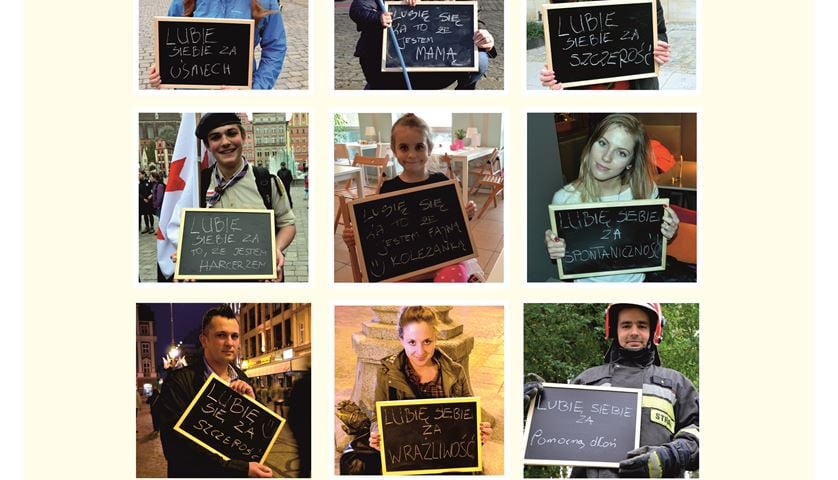 LUBIĘ
SIEBIE ZA
UŚMIECH
LUBIĘ SIĘ
ZA TO ŻE
JESTEM
MAMĄ
LUBIĘ
SIEBIE ZA
SZCZEROŚĆ
LUBIĘ
SIEBIE ZA
TO, ŻE JESTEM
HARCERZEM
LUBIĘ SIĘ
ZA TO ŻE
JESTEM FAJNĄ
KOLEŻANKĄ
LUBIĘ SIEBIE
ZA
SPONTANICZNOŚĆ
LUBIĘ
SIĘ ZA
SZCZEROŚĆ
LUBIĘ SIEBIE
ZA
WRAŻLIWOŚĆ
LUBIĘ SIEBIE
ZA
Pomocną dłoń
STRA